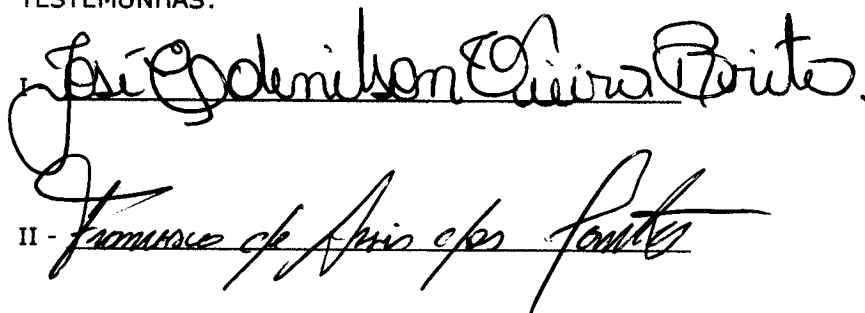 TESTEMUNHAS:
I - José Godenilson Vieira Brito.
II - Francisco de Assis dos Santos